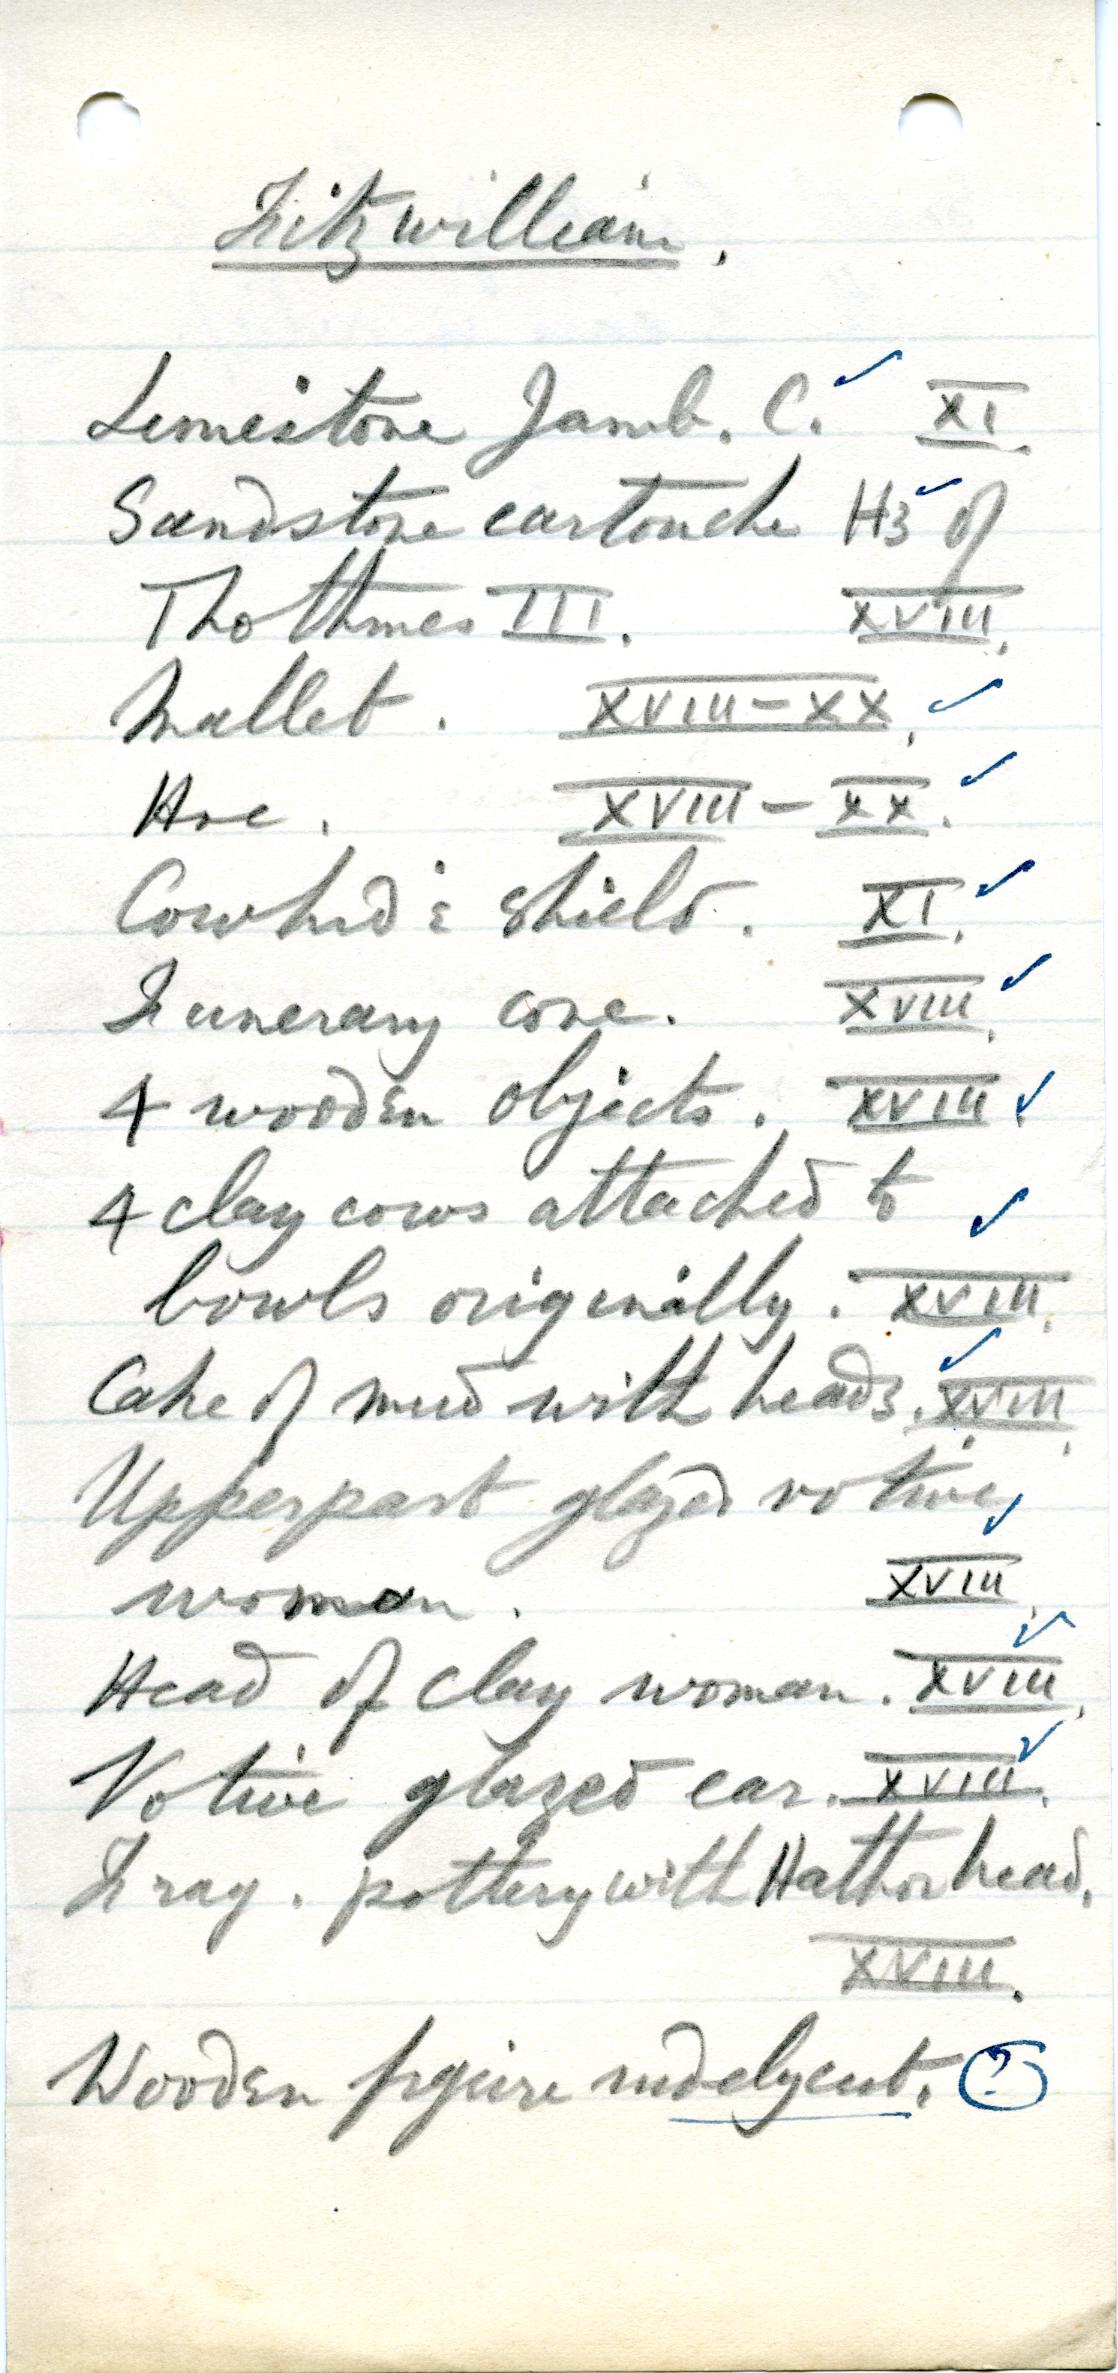 Fitzwilliam.
Limestone Jamb. C. ✓ XI.
Sandstone cartouche H3 ✓ of
Thothmes III. XVIII.
Mallet. XVIII-XX. ✓
Hoe. XVIII-XX. ✓
Cowhide shield. XI. ✓
Funerary cone. XVIII. ✓
4 wooden objects. XVIII. ✓
4 clay cows attached to ✓
bowls originally. XVIII.
Cake of mud with heads. XVIII. ✓
Upper part glazed votive ✓
woman. XVIII.
Head of clay woman. XVIII. ✓
Votive glazed ear. XVIII. ✓
Frag. pottery with Hathor head.
XVIII.
Wooden figure ?